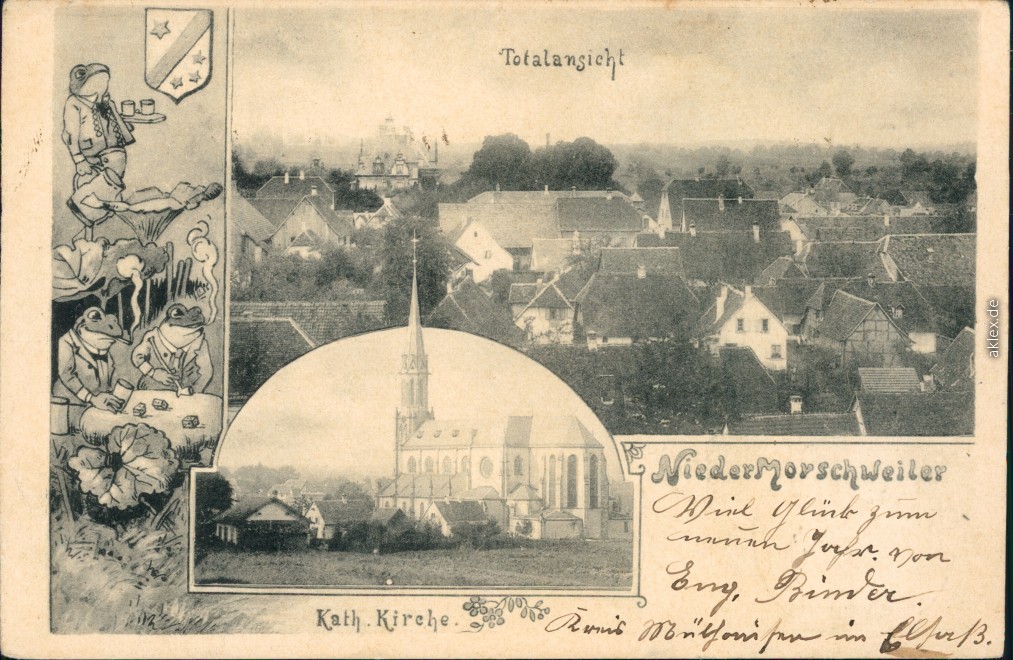 Totalansicht
NiederMorschweiler
Viel Glück zum
neuen Jahr. von
Eug. Binder.
Kath. Kirche.
Kreis Mülhausen im Elsaß.
aklex.de